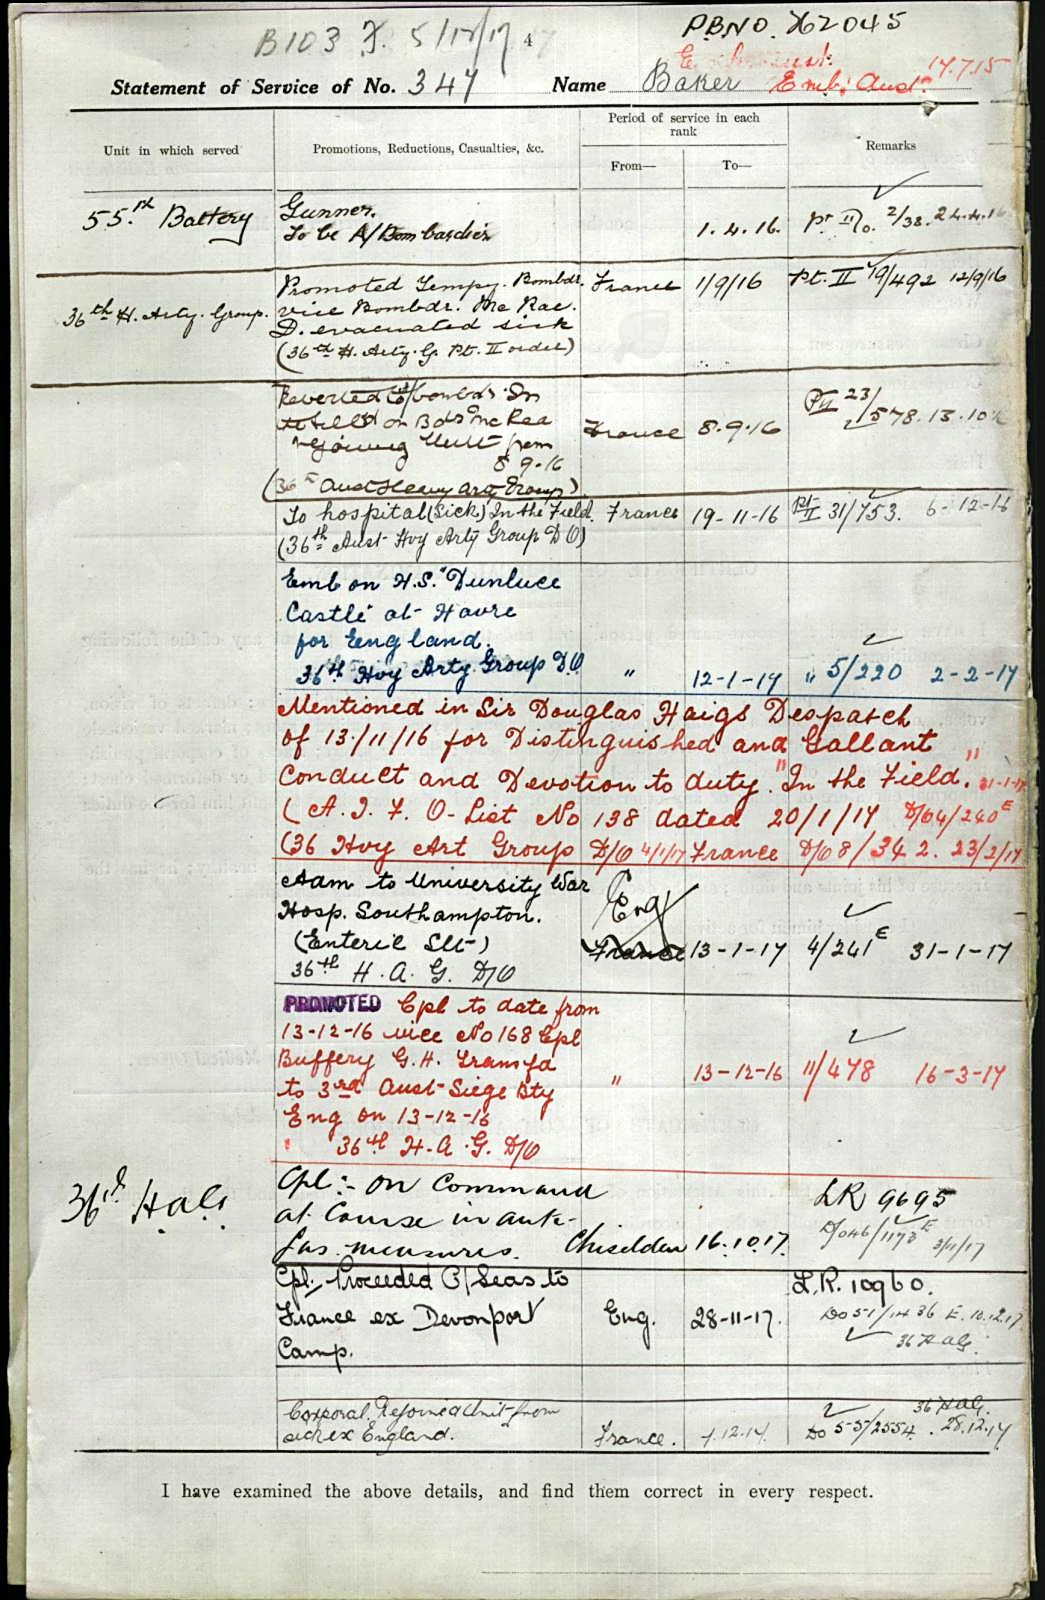 B103 5/12/17 4
PBNO. X62045
17.7.15
Statement of Service of No. 347 Name Baker Emb: Aust:
Unit in which served
Promotions, Reductions, Casualties, &c.
Period of service in each rank
From—
To—
Remarks
55th Battery
Gunner.
To be A/Bombardier 1.4.16. Pt II 2/38. 24.4.16
36th H. Arty. Group.
Promoted Tempy. Bombdr. France 1/9/16 Pt. II 19/492 12/9/16
vice Bombdr. McRae.
D. evacuated sick
(36th H. Arty. G. Pt. II order)
Reverted to
on Bdr McRea France 8.9.16 Pt II 23/578. 13.10.16
rejoining Unit from
8.9.16
(36th Aust Heavy Arty Group)
To hospital (Sick) In the Field. France 19-11-16 Pt II 31/753. 6-12-16
(36th Aust Hvy Arty Group DO)
Emb on H.S. "Dunluce
Castle" at Havre
for England.
36th Hvy Arty Group DO " 12-1-17 " 5/220 2-2-17
Mentioned in Sir Douglas Haigs Despatch
of 13/11/16 for Distinguished and Gallant
Conduct and Devotion to duty "In the Field." 31-1-17
(A.I.F. O-List No 138 dated 20/1/17 D/64/240E
(36 Hvy Art Group D/O 4/1/17 France D/O 8/342. 23/2/17
Adm to University War
Hosp. Southampton. Eng
(Enteric Slt-) France 13-1-17 4/241E 31-1-17
36th H.A.G. D/O
PROMOTED Cpl to date from
13-12-16 vice No 168 Cpl
Buffery G.H. Transfd " 13-12-16 11/478 16-3-17
to 3rd Aust Siege Bty
Eng on 13-12-16
36th H.A.G. D/O
36th HAG
Cpl:- On Command LR 9695
at Course in anti- D/O46/1173E 3/11/17
Gas measures. Chiseldon 16.10.17.
Cpl. Proceeded O/Seas to L.R. 10960.
France ex Devonport Eng. 28-11-17. DO 51/1436 E. 10.12.17
Camp. 36 HAG.
Corporal. Rejoined Unit from 36 HAG.
sick ex England. France. 1.12.17. DO 55/2554. 28.12.17
I have examined the above details, and find them correct in every respect.